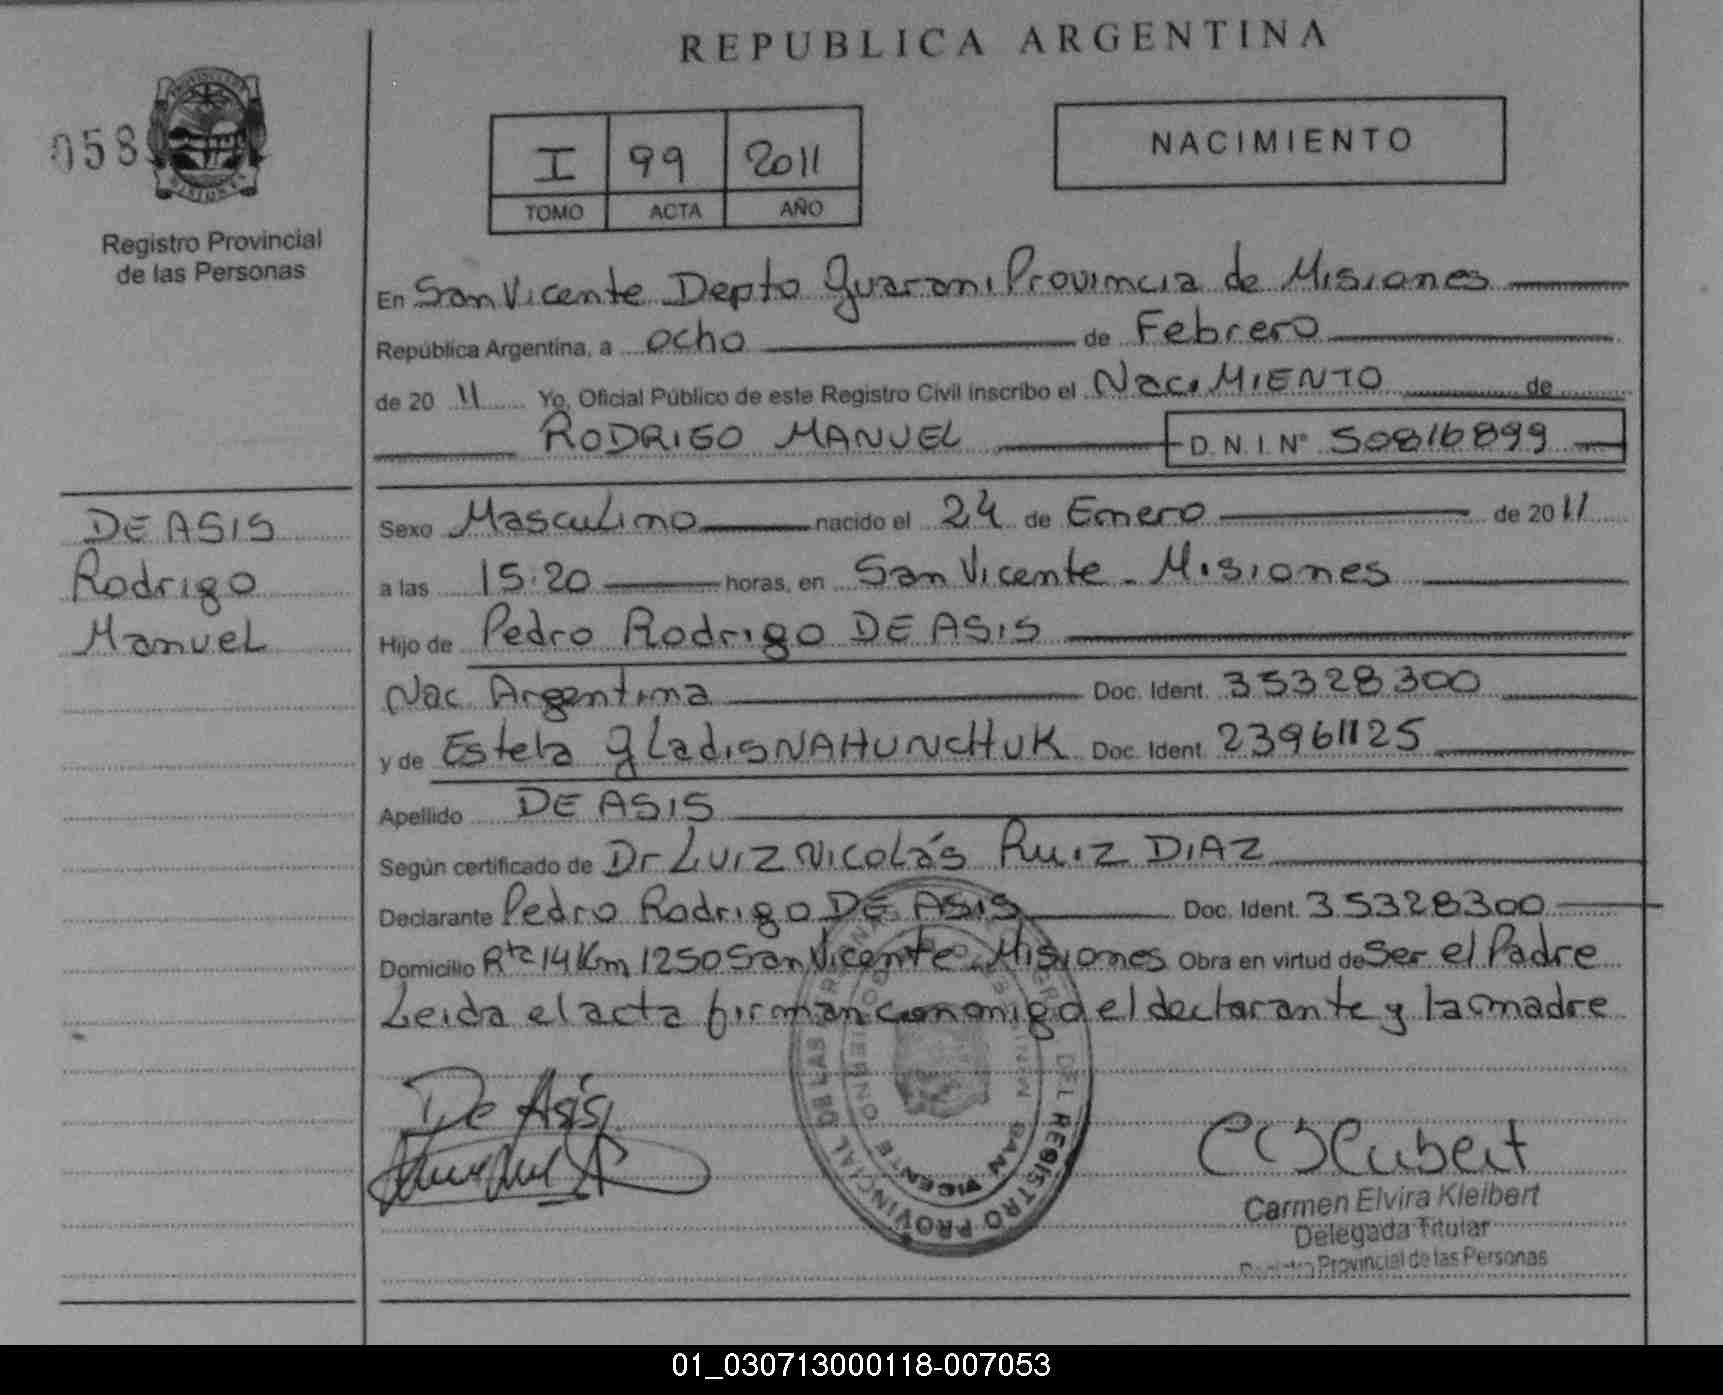 REPUBLICA ARGENTINA
058
Registro Provincial
de las Personas
I 99 2011
TOMO ACTA AÑO
NACIMIENTO
En San Vicente Depto Guarani Provincia de Misiones
República Argentina, a ocho de Febrero
de 20 11 Yo, Oficial Público de este Registro Civil inscribo el NaciMIENTO de
RODRIGO MANUEL D.N.I. Nº 50816899
DE ASIS
Rodrigo
Manuel
Sexo Masculino nacido el 24 de Enero de 2011
a las 15:20 horas, en San Vicente - Misiones
Hijo de Pedro Rodrigo DE ASIS
Nac. Argentina Doc. Ident. 35328300
y de Estela Gladis NAHUNCHUK Doc. Ident. 23961125
Apellido DE ASIS
Según certificado de Dr Luiz Nicolás Ruiz DIAZ
Declarante Pedro Rodrigo DE ASIS Doc. Ident. 35328300
Domicilio Rta 14 Km 1250 San Vicente - Misiones Obra en virtud de Ser el Padre
Leida el acta firman conmigo el declarante y la madre
De Asis
REGISTRO PROVINCIAL DE LAS
SAN VICENTE
Carmen Elvira Kleibert
Delegada Titular
Registro Provincial de las Personas
01_030713000118-007053